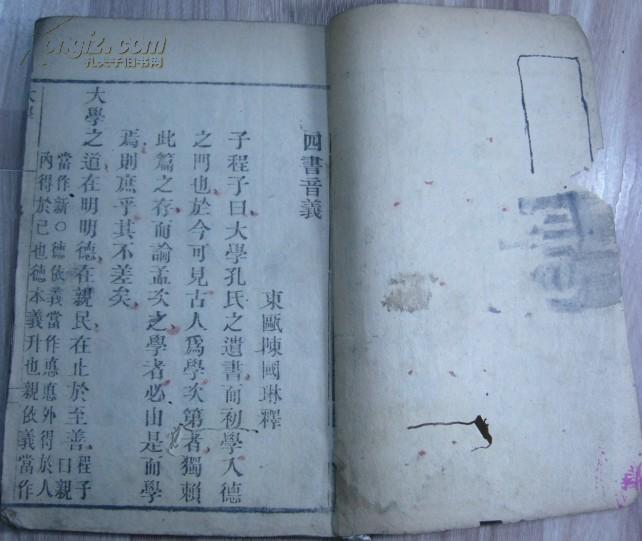 四書音義
東甌陳國琳釋
子程子曰大學孔氏之遺書而初學入德
之門也於今可見古人為學次第者獨賴
此篇之存而論孟次之學者必由是而學
焉則庶乎其不差矣
大學之道在明明德在親民在止於至善程子曰親
當作新○德依義當作悳悳外得於人
內得於己也德本義升也親依義當作
大學
孔夫子旧书网